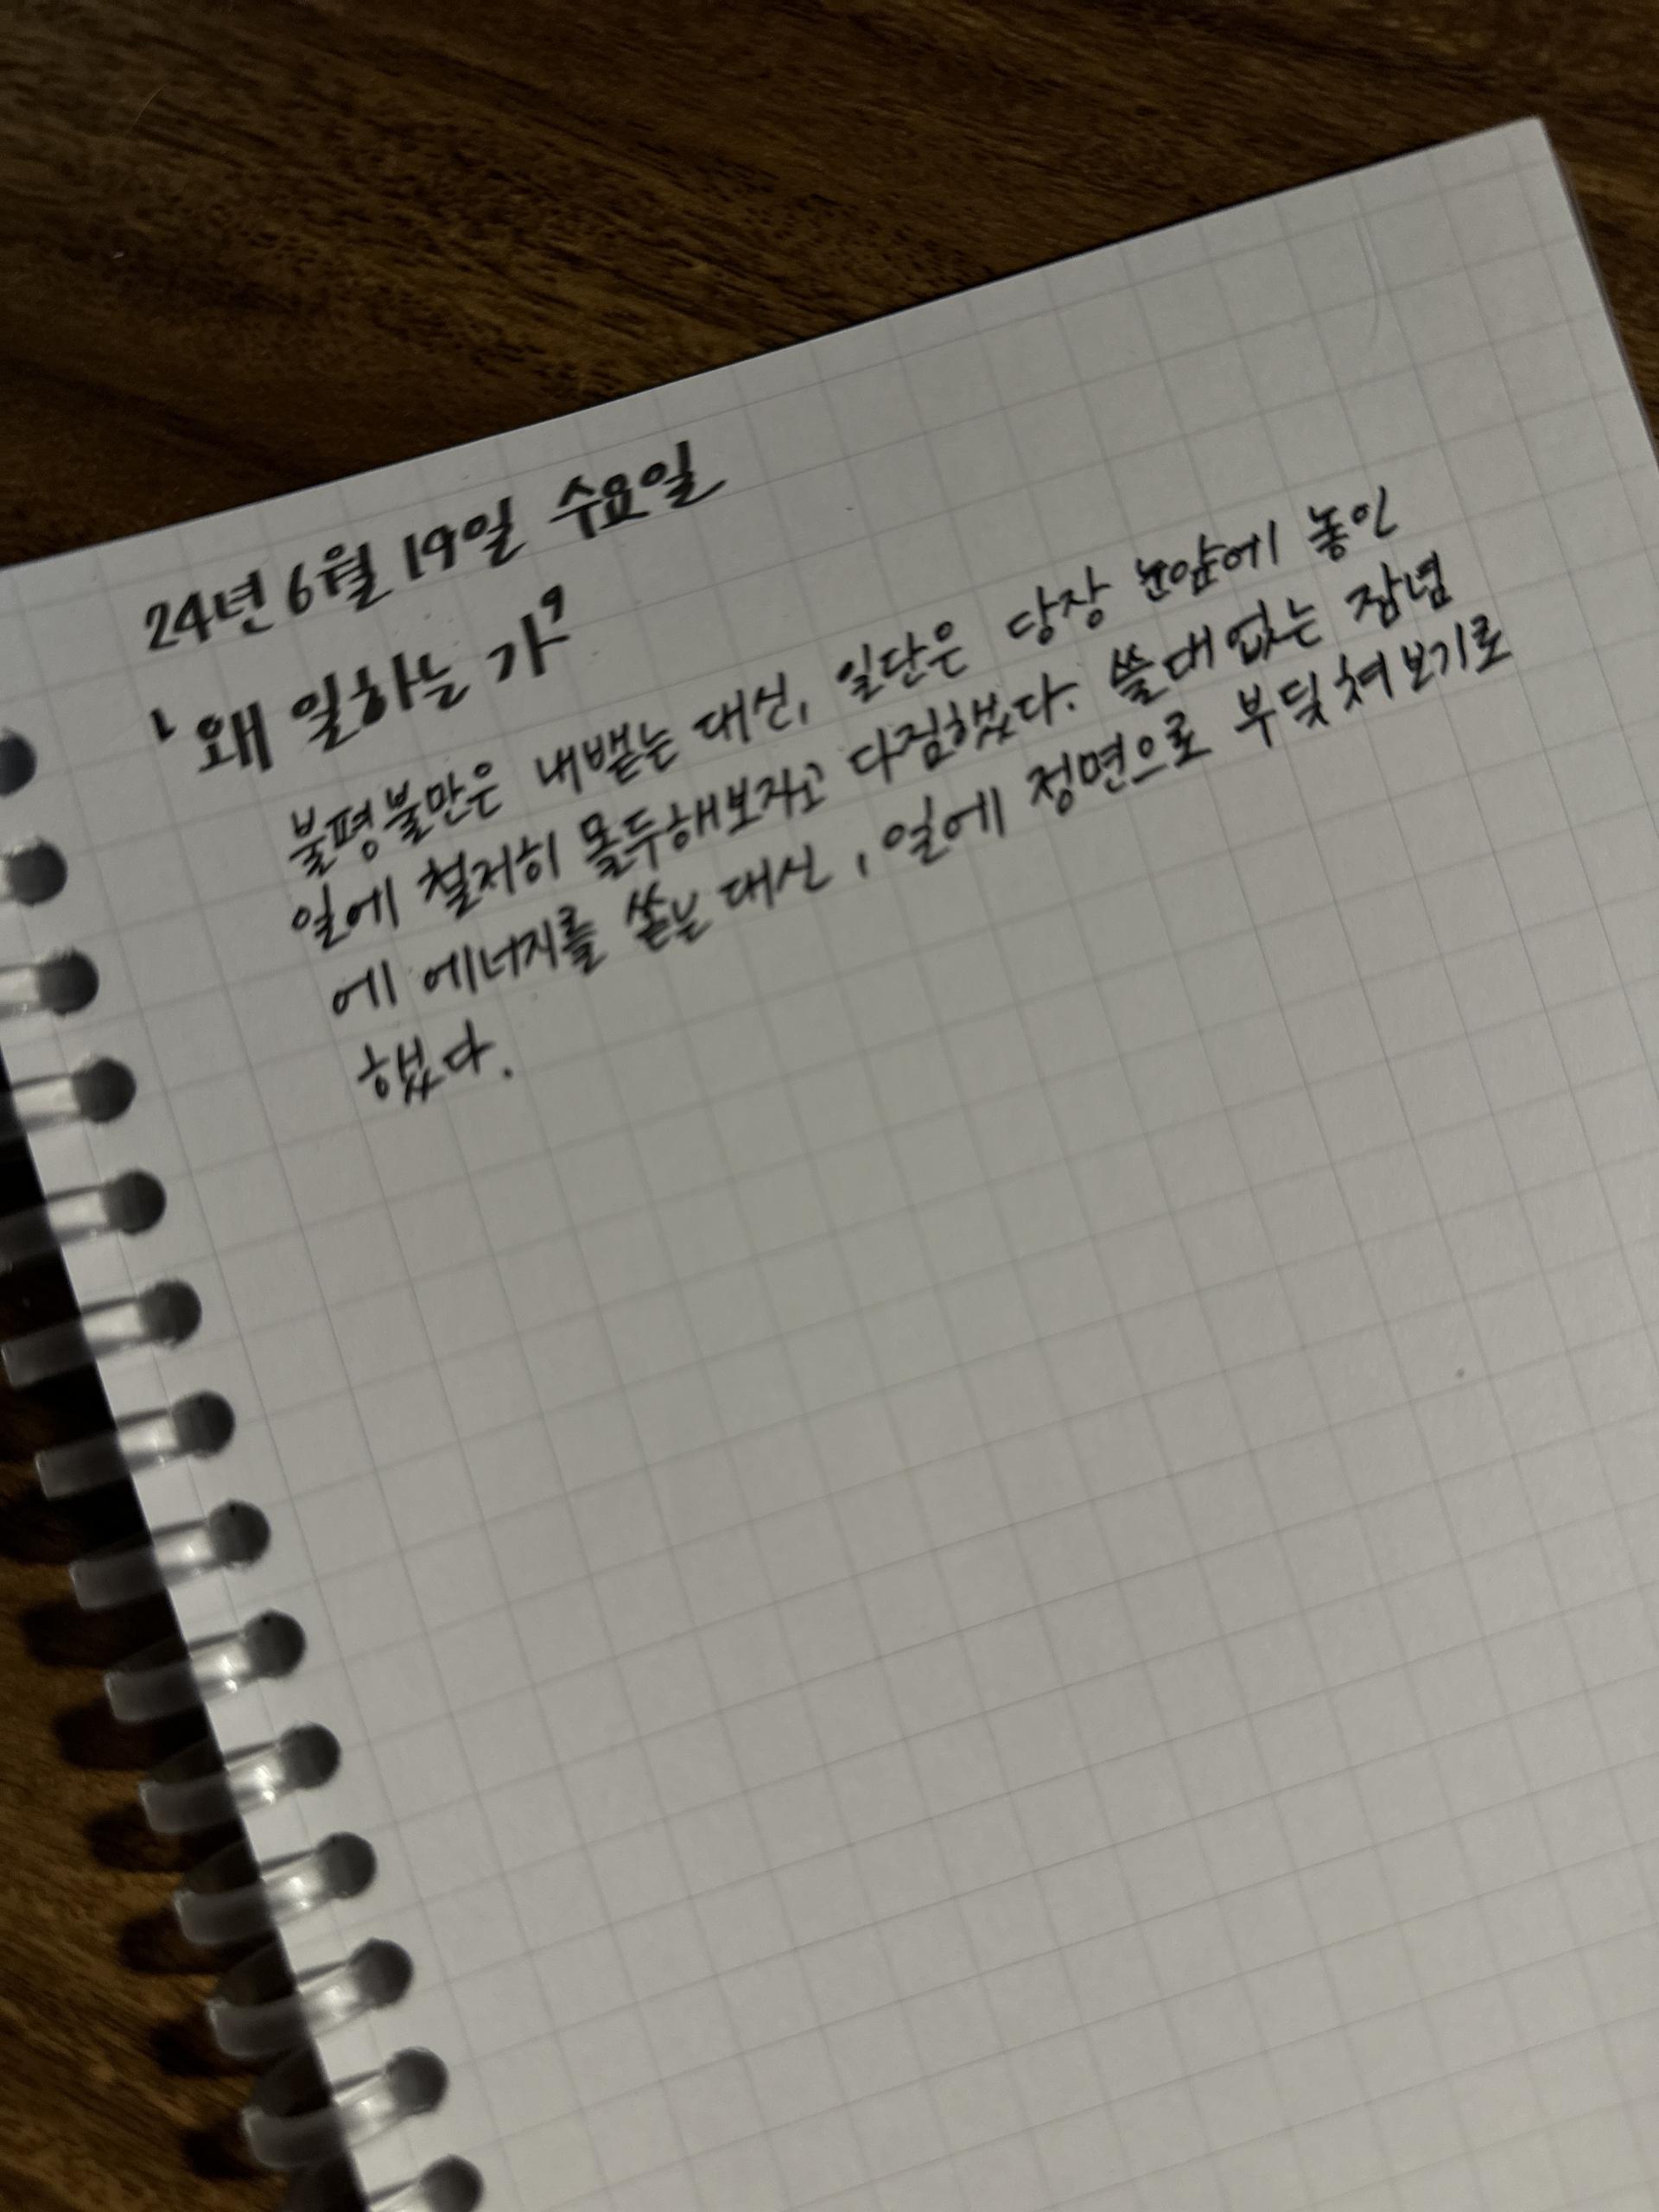 24년 6월 19일 수요일
'왜 일하는 가'
불평불만은 내뱉는 대신, 일단은 당장 눈앞에 놓인
일에 철저히 몰두해보자고 다짐했다. 쓸대없는 잡념
에 에너지를 쏟는 대신, 일에 정면으로 부딪쳐보기로
했다.